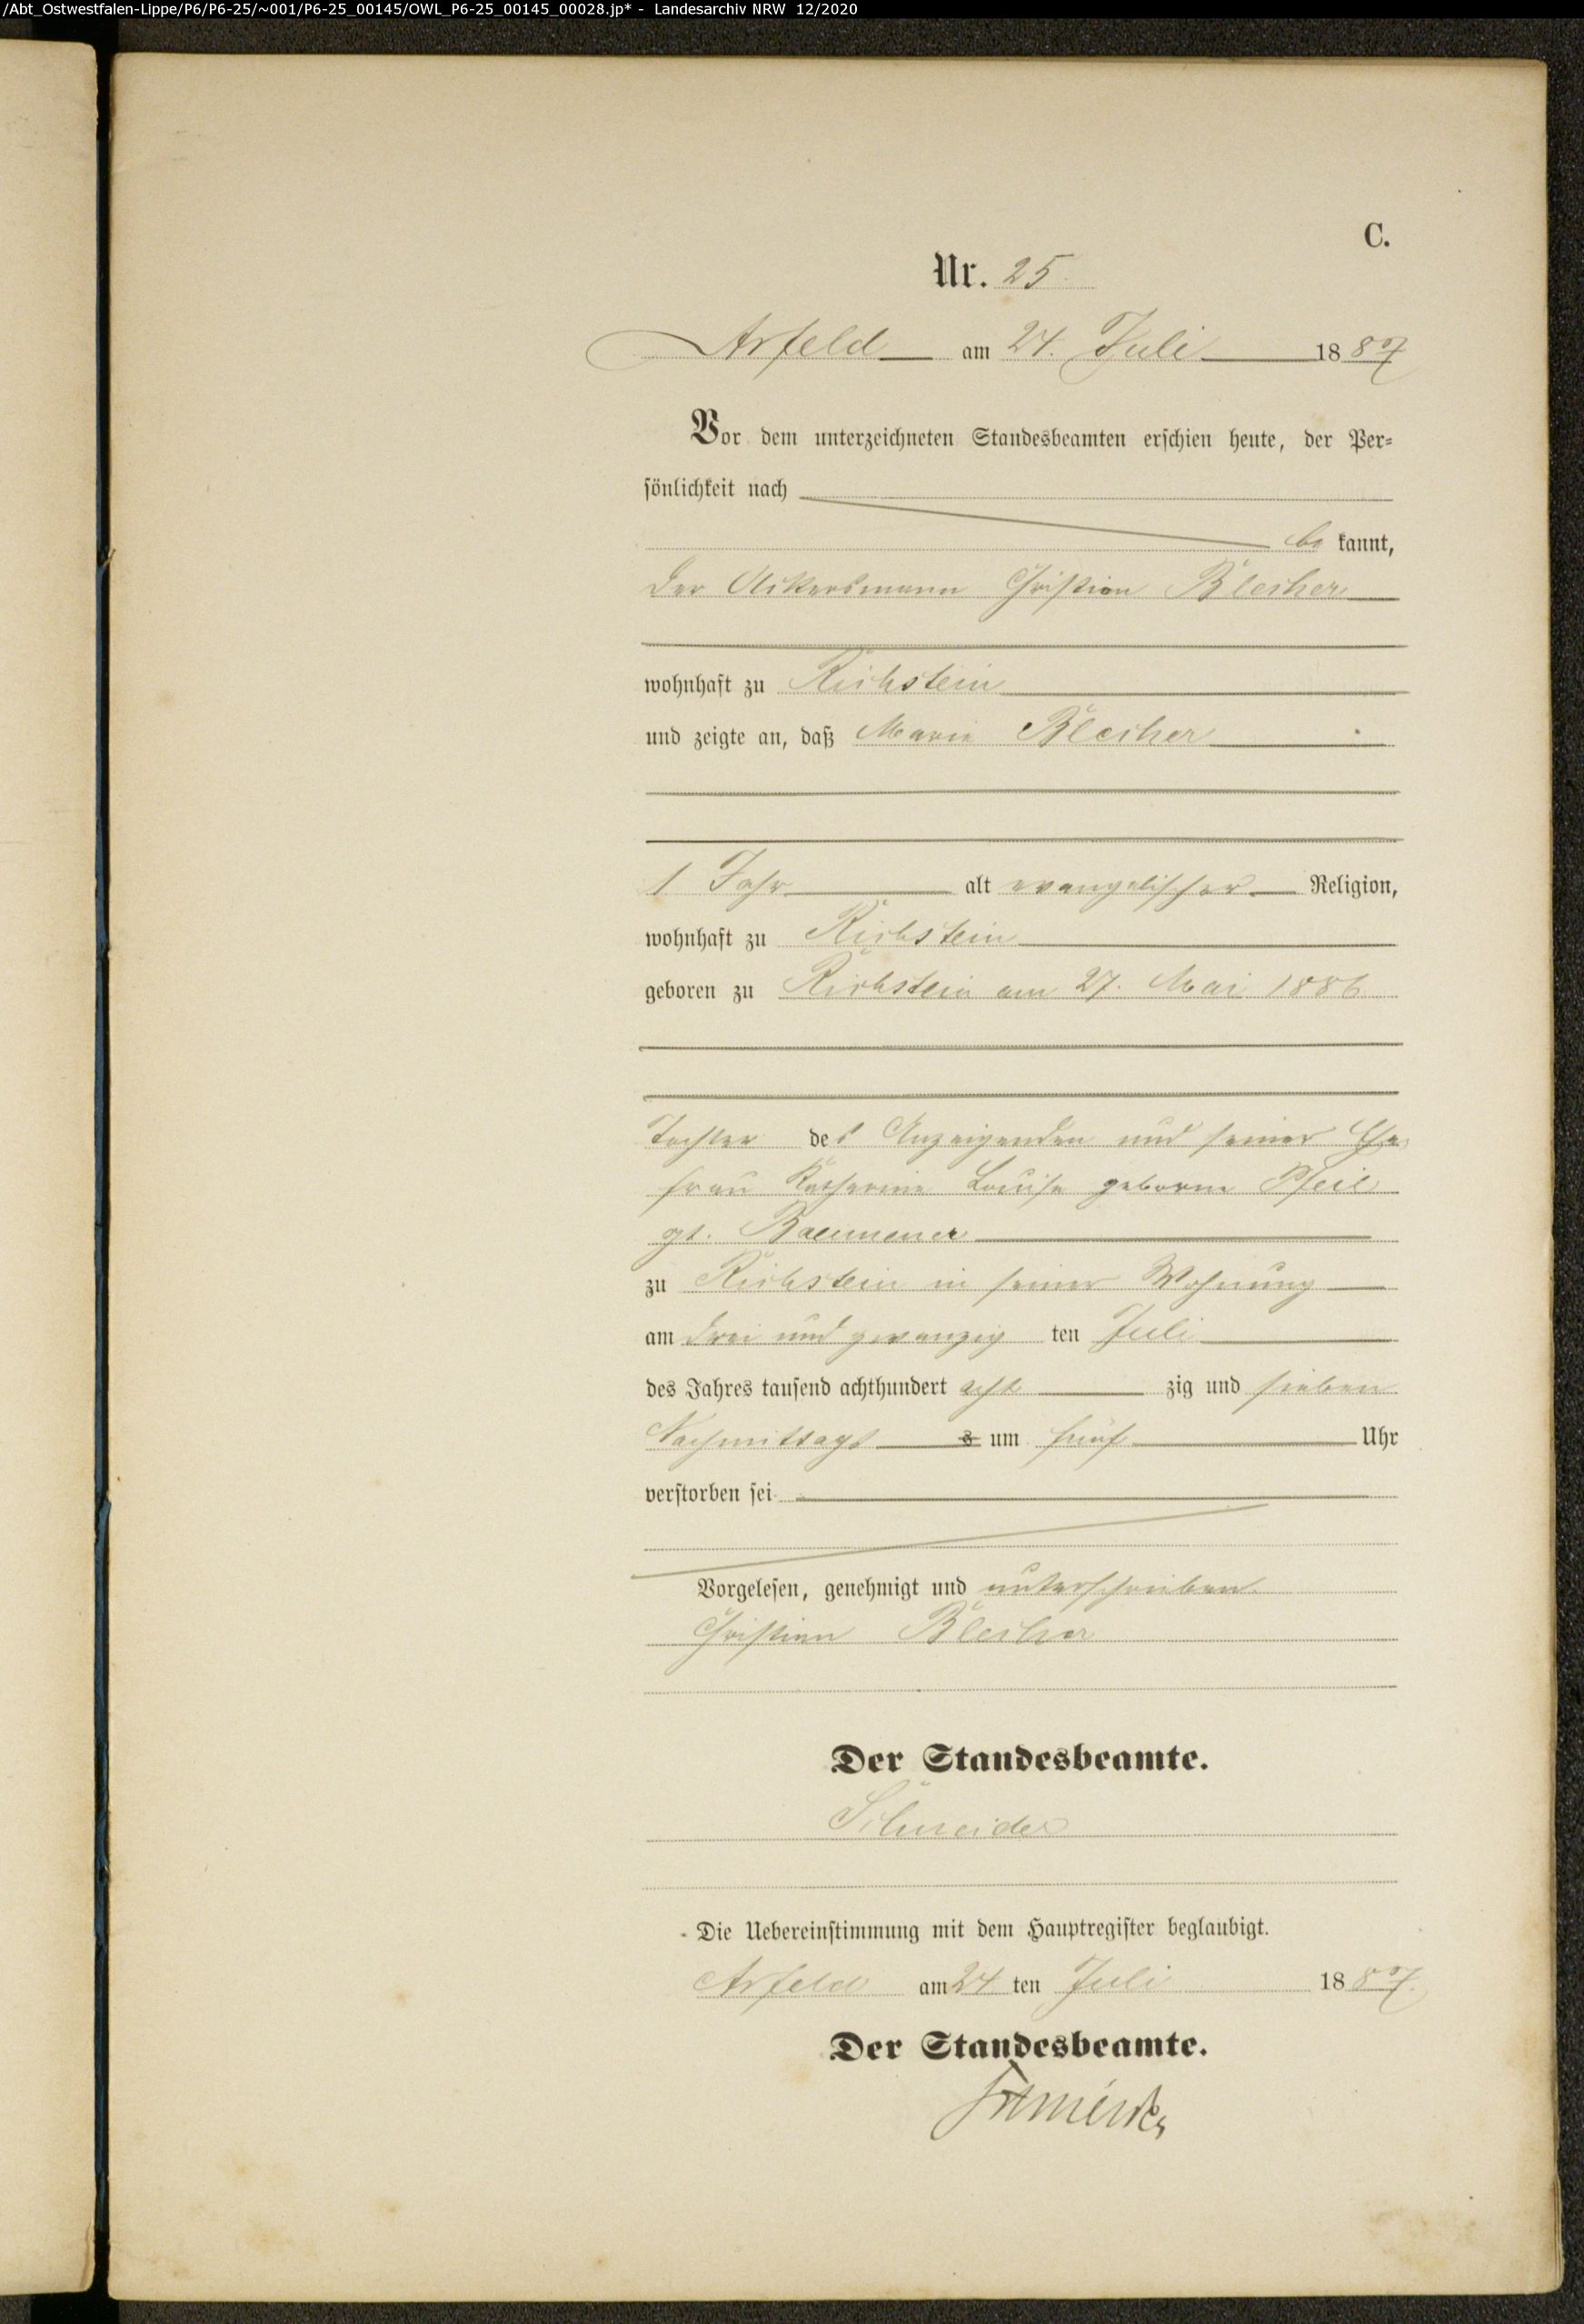 /Abt_Ostwestfalen-Lippe/P6/P6-25/~001/P6-25_00145/OWL_P6-25_00145_00028.jp* - Landesarchiv NRW 12/2020
C.
Nr. 25
Arfeld am 24. Juli 1887
Vor dem unterzeichneten Standesbeamten erschien heute, der Per-
sönlichkeit nach
be kannt,
der Ackersmann Christian Blecher
wohnhaft zu Richstein
und zeigte an, daß Marie Blecher
1 Jahr alt evangelischer Religion,
wohnhaft zu Richstein
geboren zu Richstein am 27. Mai 1886
Tochter des Anzeigenden und seiner Ehe
frau Katharine Louise geborne Pfeil
gt.
zu Richstein in seiner Wohnung
am drei und zwanzig ten Juli
des Jahres tausend achthundert acht zig und sieben
Nachmittags s um fünf Uhr
verstorben sei
Vorgelesen, genehmigt und unterschrieben
Christian Blecher
Der Standesbeamte.
Schneider
Die Uebereinstimmung mit dem Hauptregister beglaubigt.
Arfeld am 24 ten Juli 1887.
Der Standesbeamte.
Schneider